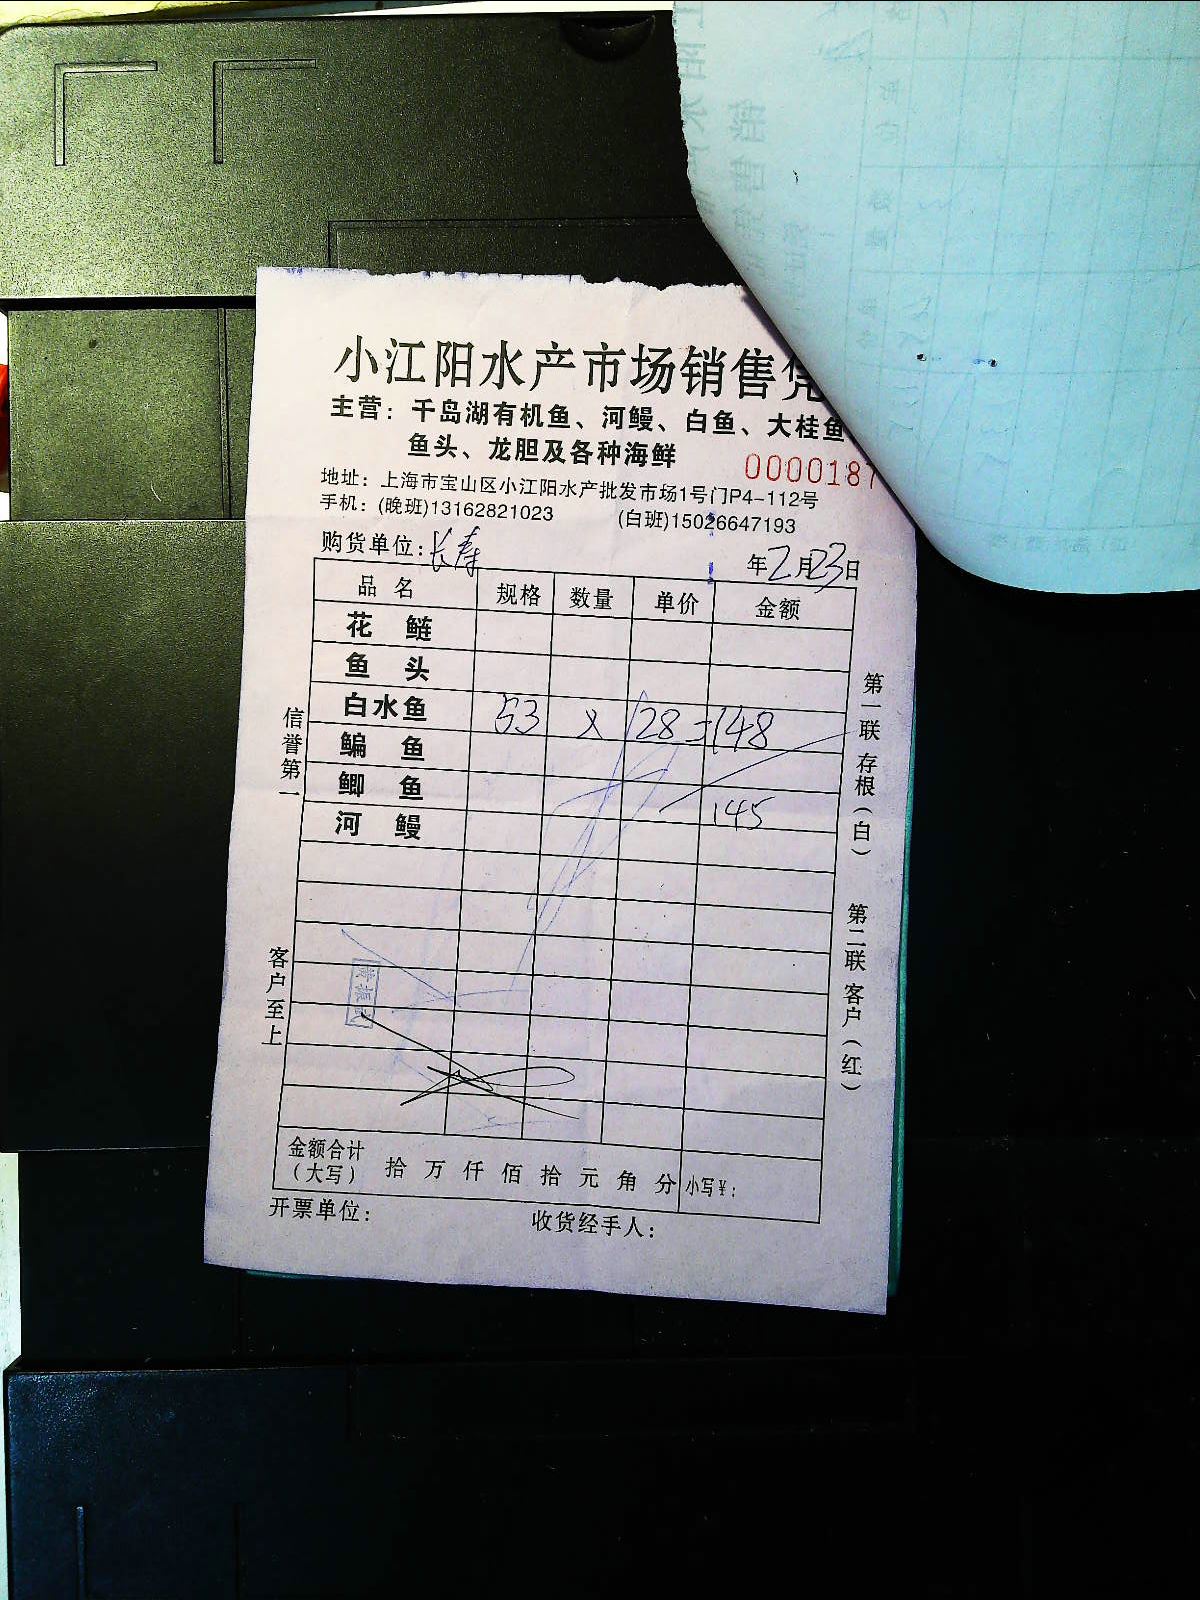 小江阳水产市场销售凭
主营：千岛湖有机鱼、河鳗、白鱼、大桂鱼
鱼头、龙胆及各种海鲜
0000187
地址：上海市宝山区小江阳水产批发市场1号门P4-112号
手机：(晚班)13162821023 (白班)15026647193
购货单位：长寿 年2月23日
品名 规格 数量 单价 金额
花鲢
鱼头
白水鱼 53 × 128=148
鳊鱼
鲫鱼 145
河鳗
信誉第一
客户至上
第一联 存根（白）
第二联 客户（红）
金额合计（大写） 拾万仟佰拾元角分 小写￥：
开票单位： 收货经手人：